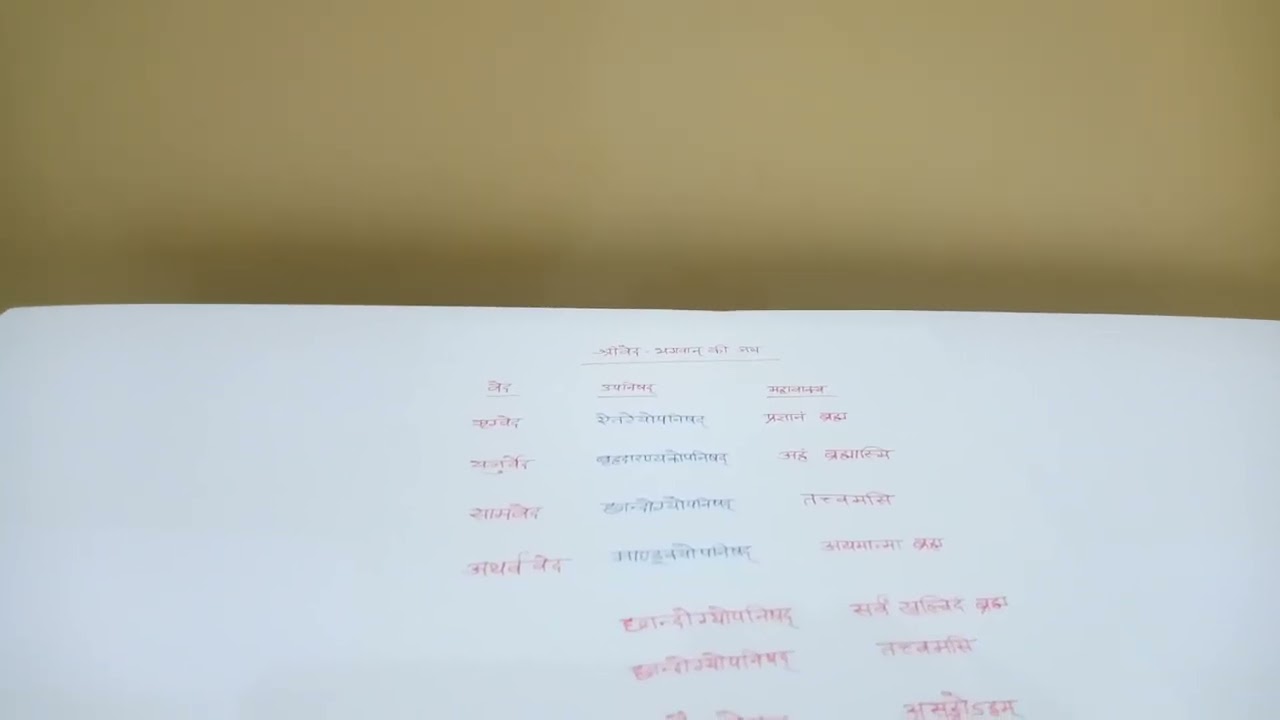 श्रीवेद - भगवान् की जय
वेद उपनिषद् महावाक्य
ऋग्वेद ऐतरेयोपनिषद् प्रज्ञानं ब्रह्म
यजुर्वेद बृहदारण्यकोपनिषद् अहं ब्रह्मास्मि
सामवेद छान्दोग्योपनिषद् तत्त्वमसि
अथर्व वेद माण्डूक्योपनिषद् अयमात्मा ब्रह्म
छान्दोग्योपनिषद् सर्वं खल्विदं ब्रह्म
छान्दोग्योपनिषद् तत्त्वमसि
असङ्गोऽहम्